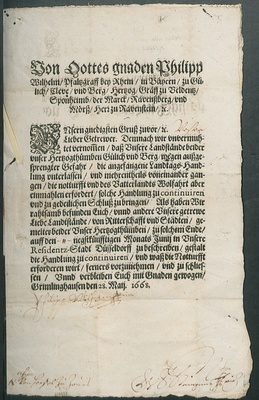 Von Gottes gnaden Philipp
Wilhelm, Pfaltzgraff bey Rhein, in Bäyern, zu Gü-
lich, Cleve, und Berg, Hertzog, Graff zu Veldentz,
Sponheimb, der Marck, Ravenßberg, und
Mörß, Herr zu Ravenstein, ꝛc.
Unsern gnedigsten Gruß zuvor, ꝛc.
Lieber Getrewer. Demnach wir unvermuh-
tet vernossen, daß Unsere Landstände beider
unser Hertzogthümben Gülich und Berg wegen außge-
sprengter Gefahr, die angefangene Landtags-Hand-
lung unterlassen, und mehrentheils voneinander gan-
gen, die notturfft und des Vatterlands Wolfahrt aber
einmahlen erfordert, solche Handlung zu continuiren
und zu gedeylichen Schluß zu bringen, Als haben Wir
rahtsamb erfunden Euch, und andere Unsere getrewe
Liebe Landstände, von Ritterschafft und Städten, ge-
melter beider Unser Hertzogthümben, zu solchem Ende,
auff den negstkünfftigen Monats Junij in Unsere
Residentz-Stadt Düsseldorff zu beschreiben, gestalt
die Handlung zu continuiren, und waß die Notturfft
erforderen wirt, ferners vorzunehmen, und zu schlies-
sen, Unnd verbleiben Euch mit Gnaden gewogen,
Grimlinghausen den 28. Maij. 1668.